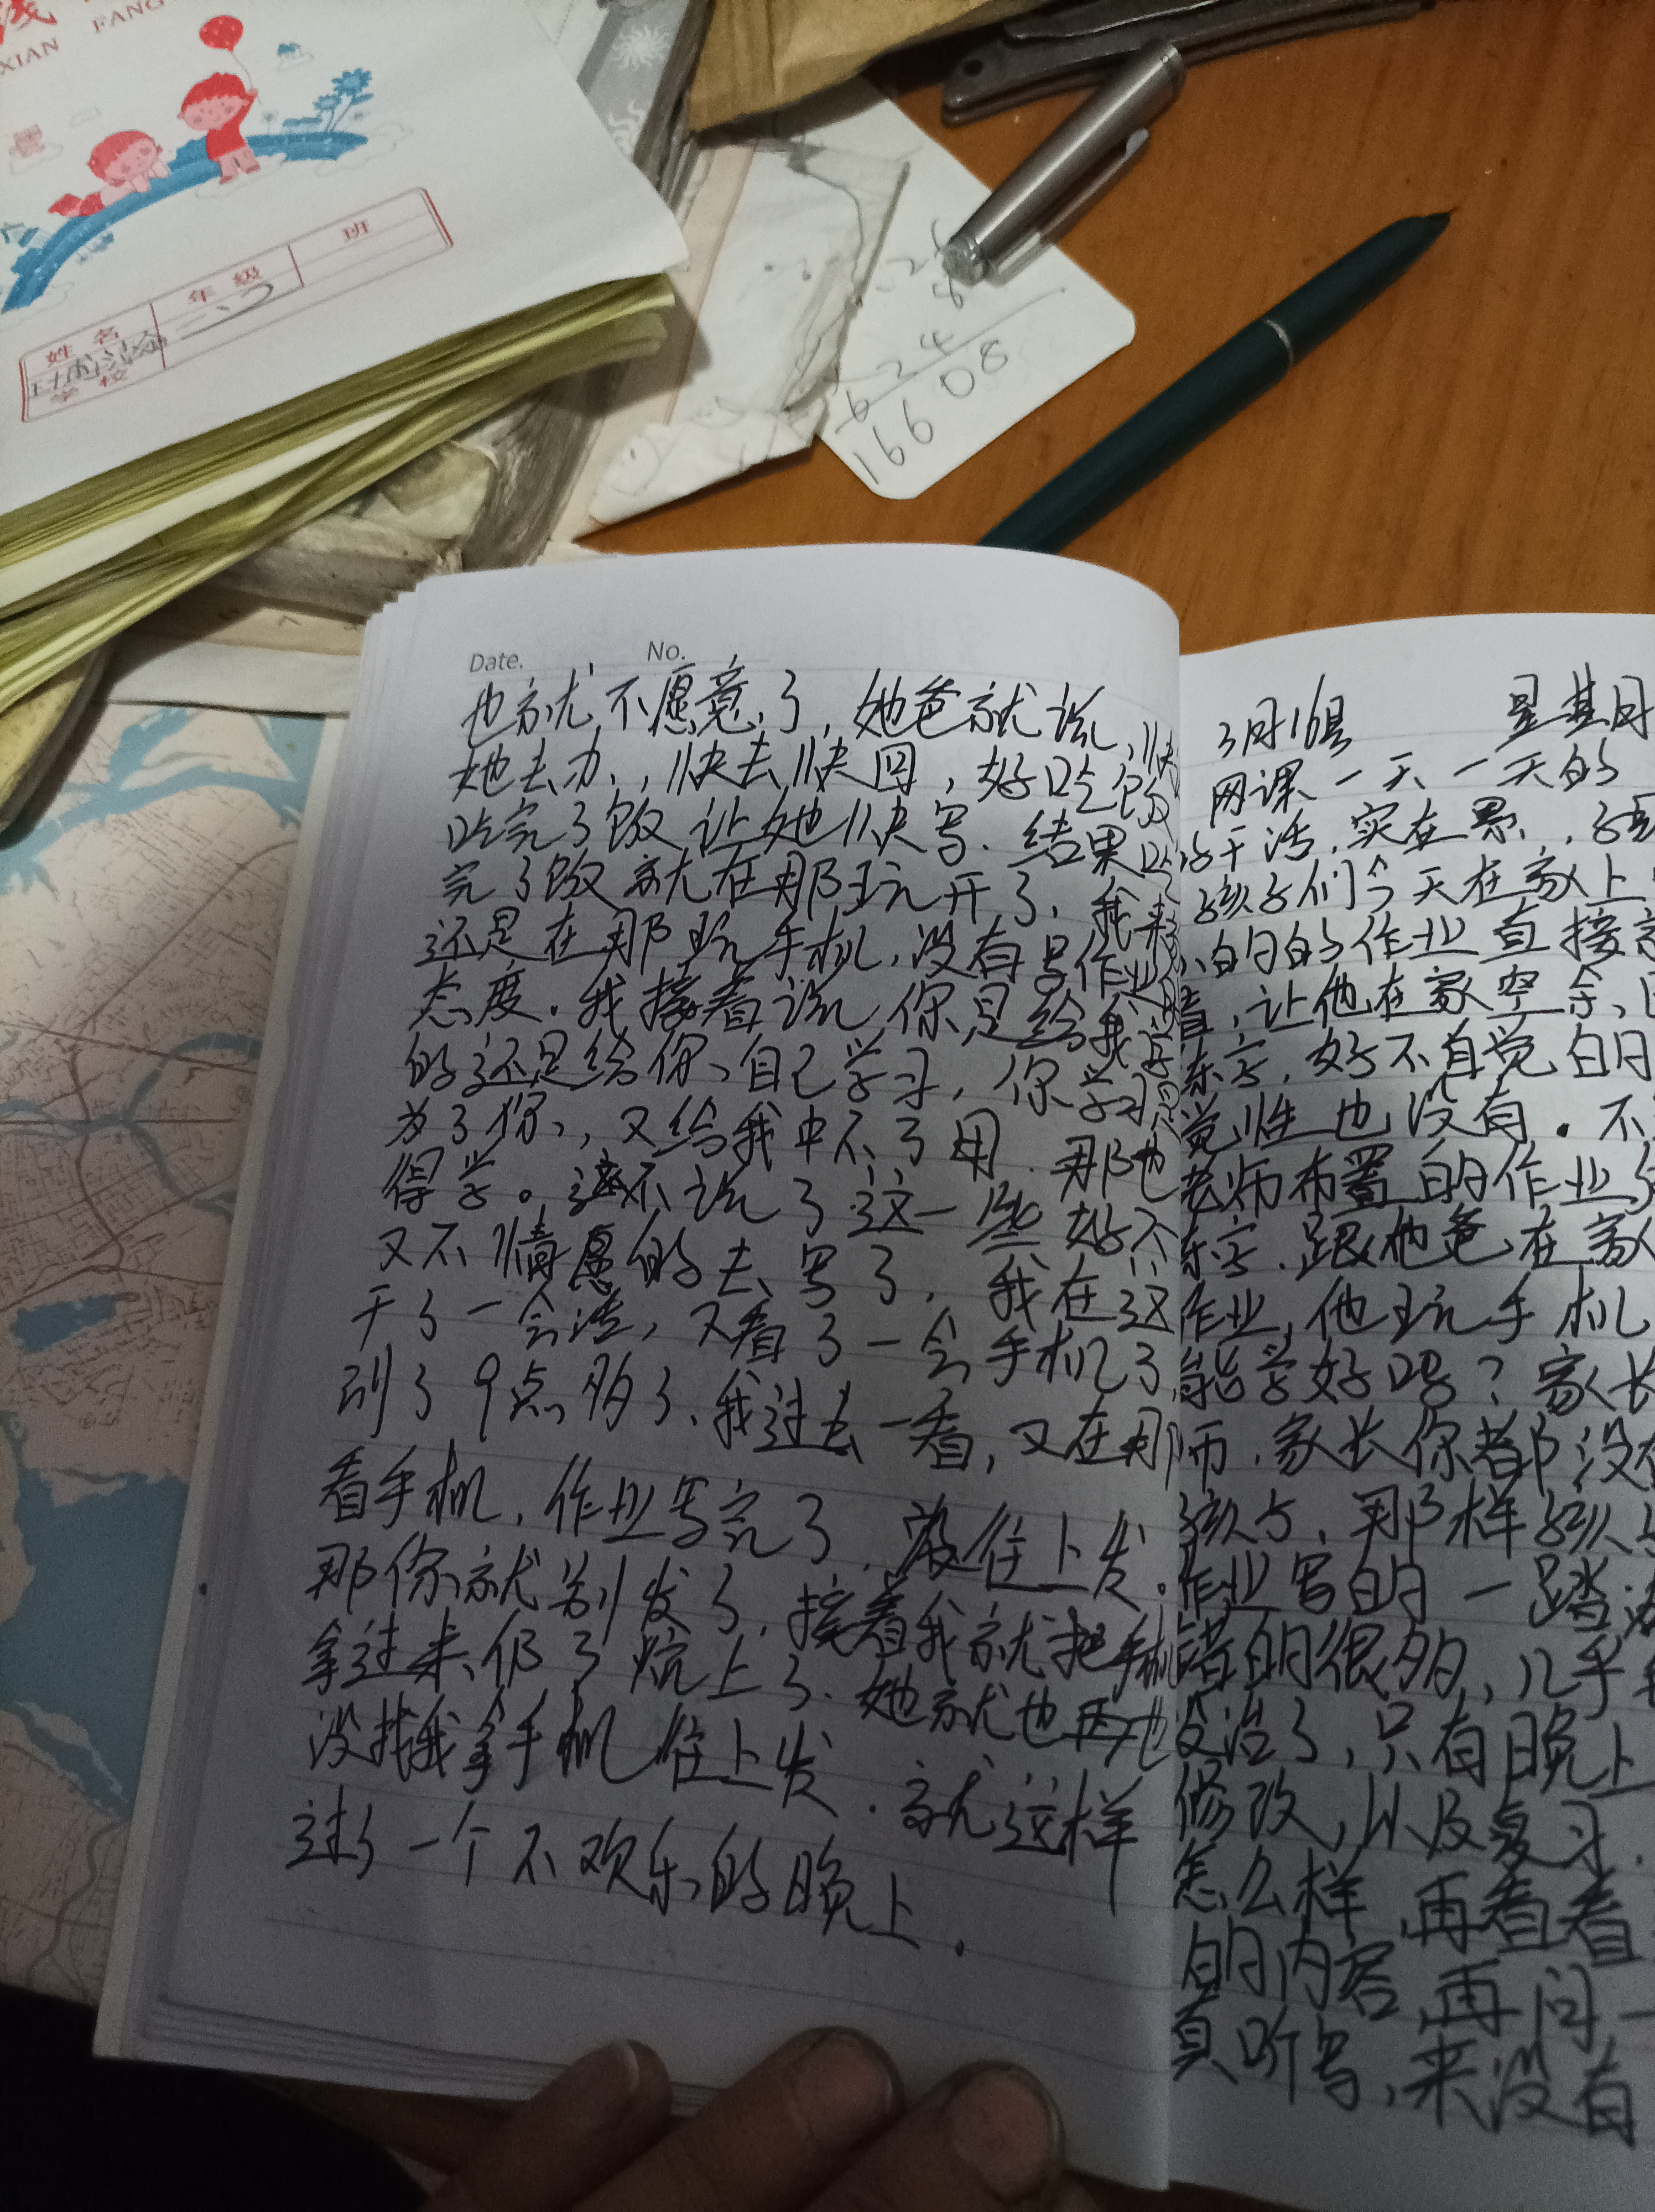 线
XIAN FANG
姓名
年级
班
学校
二、2
8
624
16608
Date. No.
也就不愿意了，她爸就说，快
她去办，快去快回，好吃饭
吃完了饭让她快写．结果吃
完了饭就在那玩开了，我来
还是在那玩手机，没有写作业
态度。我接着说你是给我学
的还是给你自己学习，你学习是
为了你，又给我中不了用．那也
得学。说了这一些好不
又不情愿的去写了，我在这
干了一会活，又看了一会手机了
到了9点多了，我过去一看，又在那
看手机，作业写完了，没往上发．
那你就别发了，接着我就把手机
拿过来仍了炕上了．她就也
没找我拿手机往上发．就这样
过了一个不欢乐的晚上．
3月1 星期
网课一天一天的
干活，实在累，
孩子们今天在家上
的作业直接
，让他在家空余，
东字，好不自觉白日
觉性也没有．不
老师布置的作业
东字．跟他爸在家
作业，他玩手机
能学好吗？家长
师．家长你都没
孩子，那样孩子
作业写的一踏
错的很多，几乎
没治了，只有晚上
修改，以及复习．
怎么样，再看看
的内容，再问一
真听写，来没有